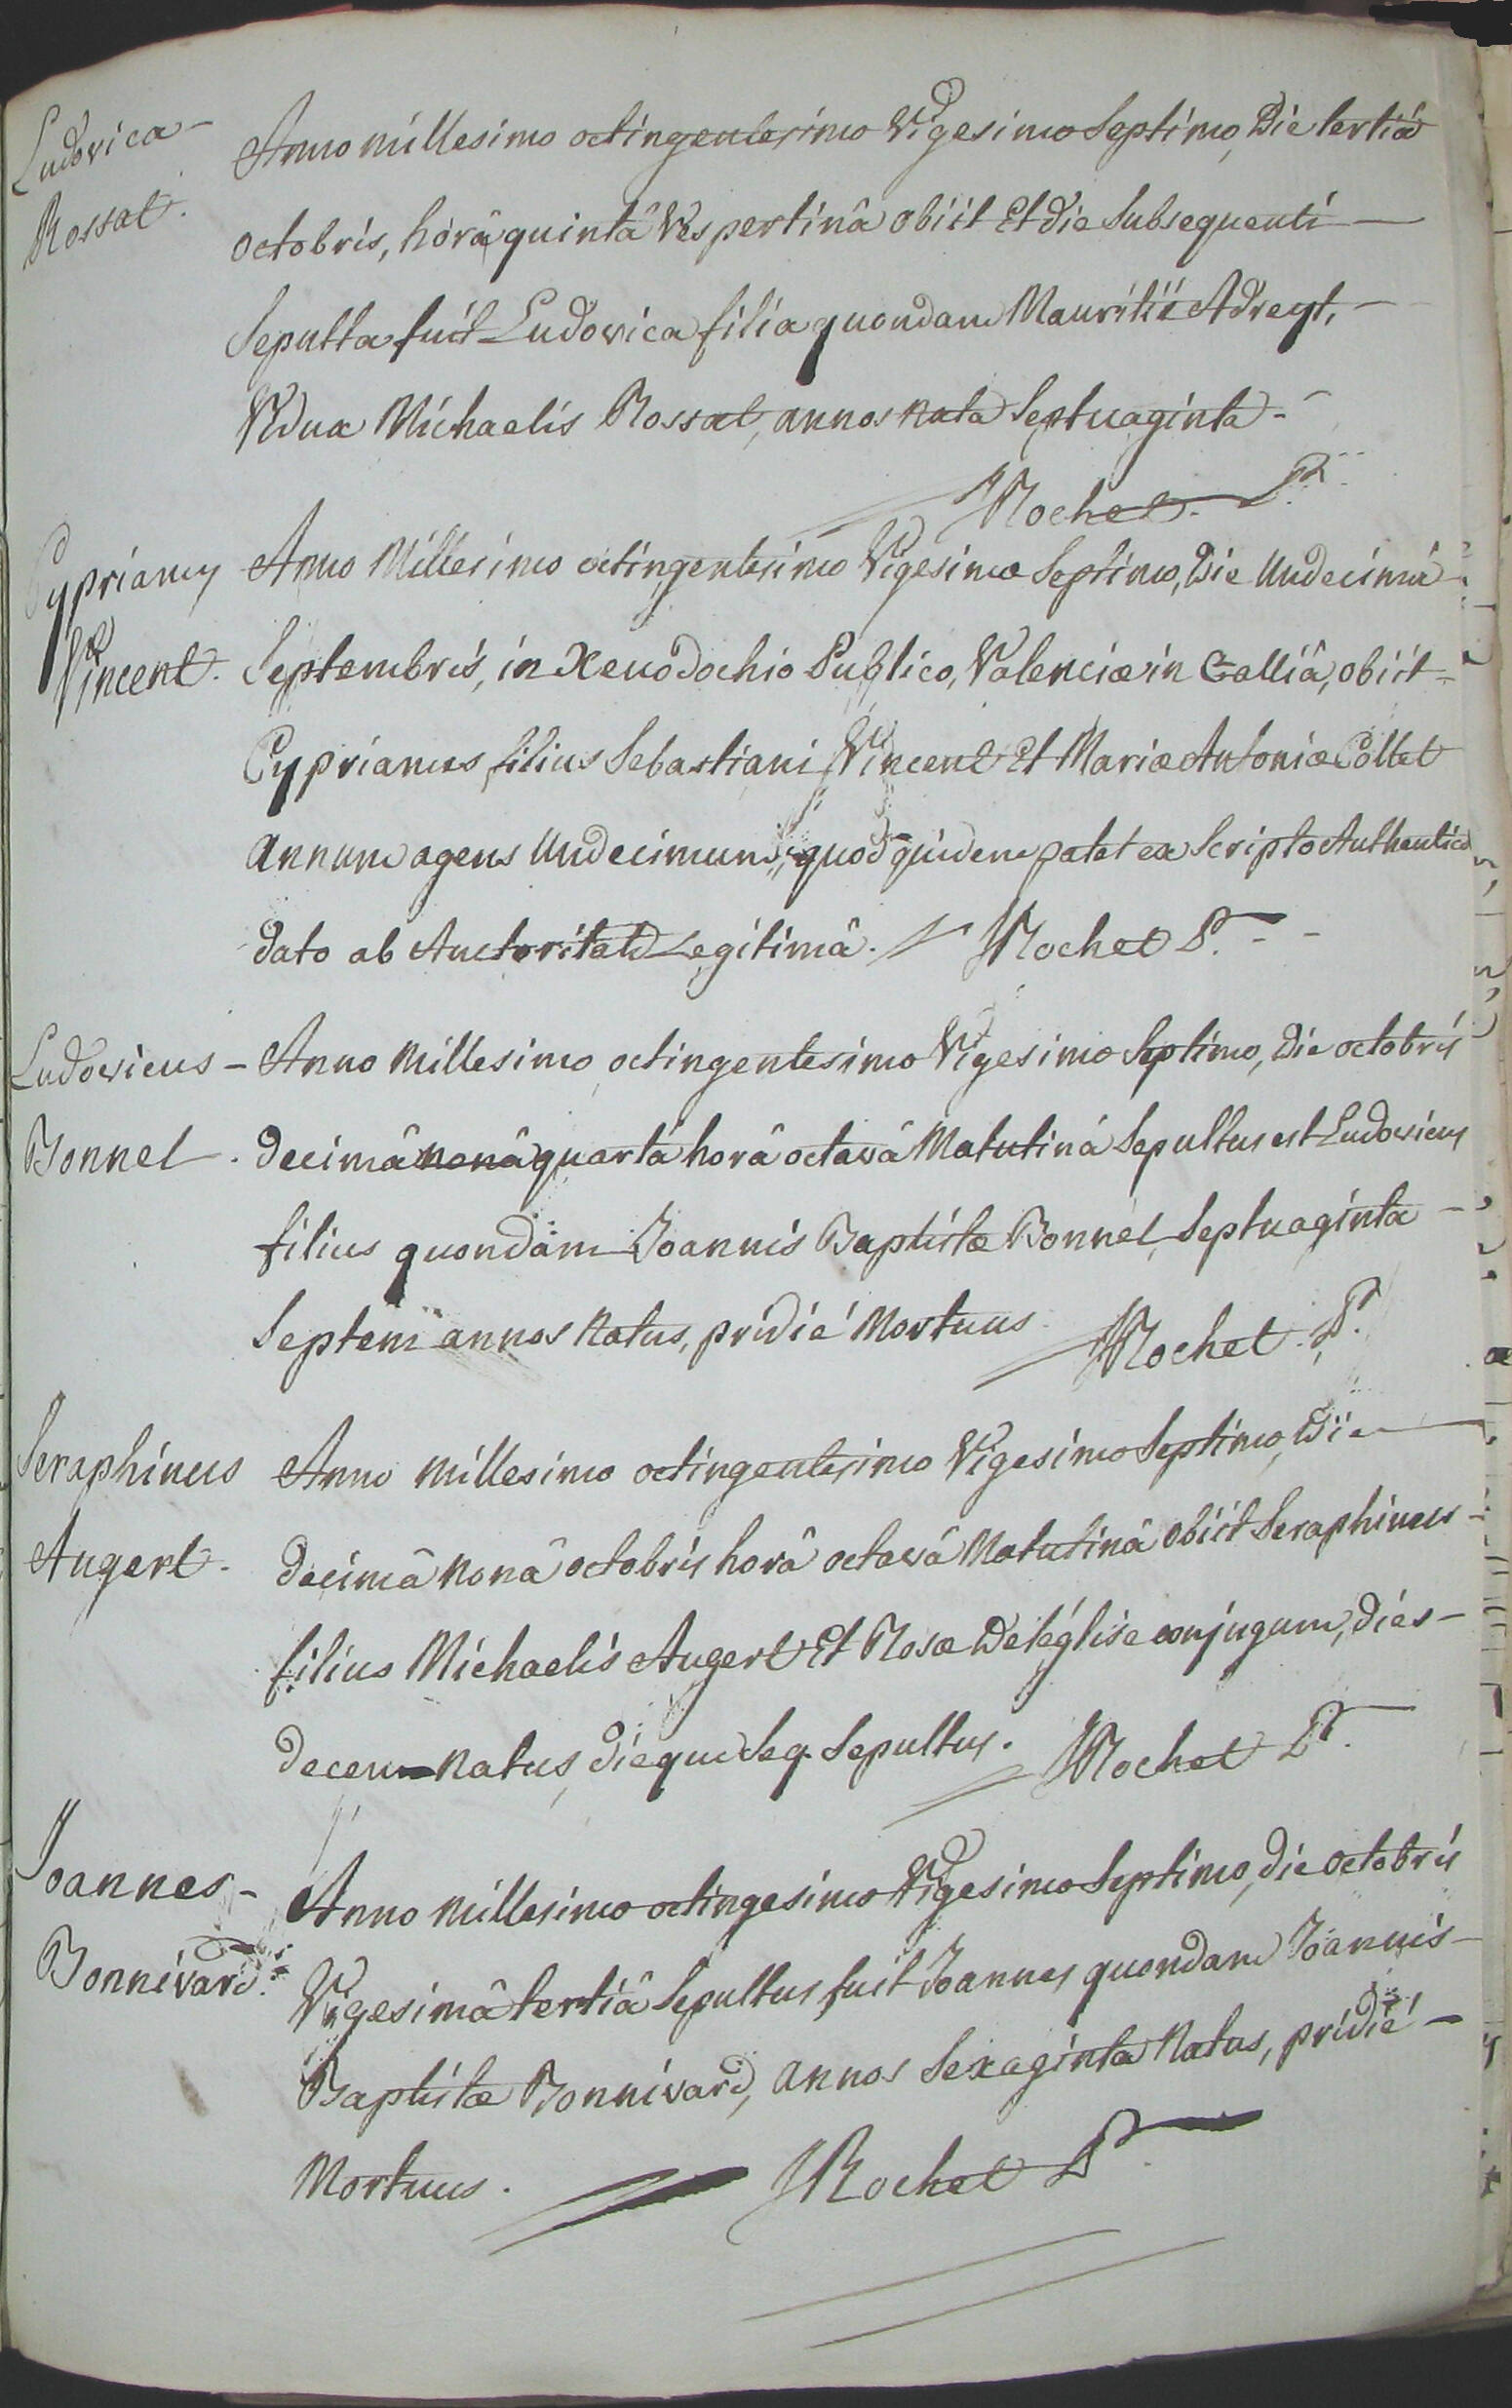 Ludovica -
Rossat.
Anno millesimo octingentesimo Vigesimo Septimo, Die tertiâ
octobris, horâ quintâ Vespertinâ obiit Et die Subsequenti -
Sepulta fuit Ludovica filia quondam Mauritii Adreyt, -
Vidua Michaelis Rossat, annos nata Septuaginta. -
Rochet Pr.
Cyprianus
Vincent.
Anno Millesimo octingentesimo Vigesimo Septimo, Die Undecimâ
Septembris, in Xenodochio Publico, Valenciæ in Galliâ, obiit -
Cyprianus filius Sebastiani Vincent Et Mariæ Antoniæ Collet
annum agens Undecimum, quod quidem patet ex Scripto Authentico
dato ab Auctoritate Legitimâ. Rochet Pr.
Ludovicus -
Bonnel.
Anno Millesimo octingentesimo Vigesimo Septimo, Die octobris
decimâ nonâ quartâ horâ octavâ Matutinâ Sepultus est Ludovicus
filius quondam Joannis Baptistæ Bonnel, Septuaginta -
Septem annos natus, pridié Mortuus. Rochet Pr.
Seraphinus
Augert.
Anno millesimo octingentesimo Vigesimo Septimo, Die -
decimâ nonâ octobris horâ octavâ Matutinâ obiit Seraphinus -
filius Michaelis Augert Et Rosæ Deléglise conjugum, dies -
decem natus, dieque Seq. Sepultus. Rochet Pr.
Joannes -
Bonnivard.
Anno millesimo octingesimo Vigesimo Septimo, die octobris
Vigesimâ tertiâ Sepultus fuit Joannes quondam Joannis -
Baptistæ Bonnivard, annos Sexaginta Natus, pridié -
Mortuus. Rochet Pr.